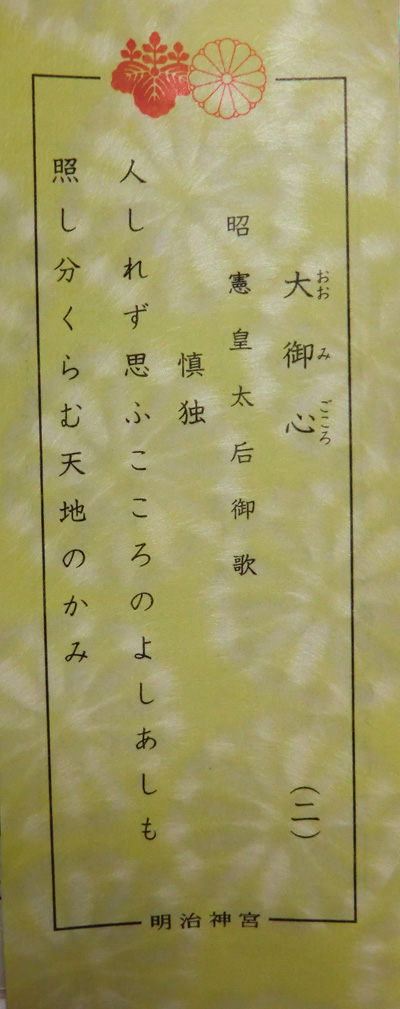 大御心
おおみごころ
(二)
昭憲皇太后御歌
慎独
人しれず思ふこころのよしあしも
照し分くらむ天地のかみ
明治神宮